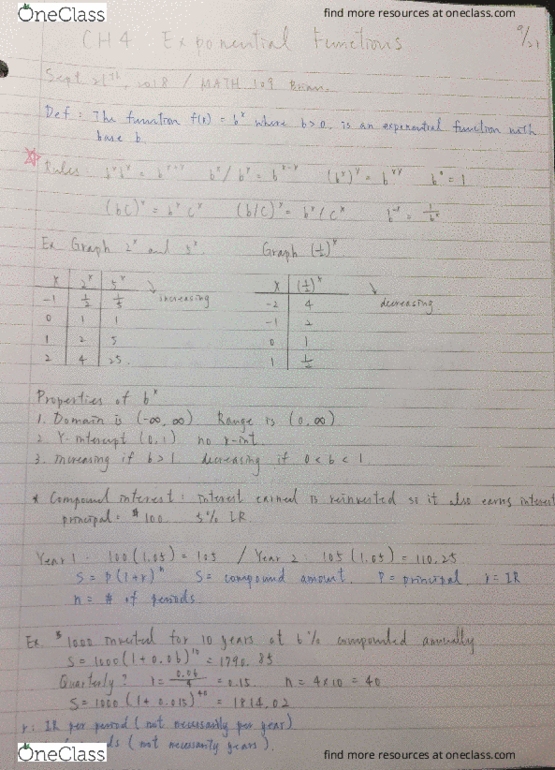 OneClass find more resources at oneclass.com
CH 4 Exponential Functions 9/21
Sept 21th, 2018 / MATH 109
Def: The function f(x) = b^x where b>0 is an exponential function with
base b.
Rules: b^x b^y = b^(x+y) b^x / b^y = b^(x-y) (b^x)^y = b^(xy) b^0 = 1
(bc)^x = b^x c^x (b/c)^x = b^x / c^x b^(-x) = 1/b^x
Ex Graph 2^x and 5^x. Graph (1/2)^x
x 2^x 5^x ↘ increasing x (1/2)^x ↘ decreasing
-1 1/2 1/5 -2 4
0 1 1 -1 2
1 2 5 0 1
2 4 25 1 1/2
Properties of b^x
1. Domain is (-∞, ∞) Range is (0, ∞)
2. Y-intercept (0, 1) no x-int
3. Increasing if b>1 decreasing if 0<b<1
* Compound interest: interest earned is reinvested so it also earns interest
principal = $100 5% IR
Year 1: 100(1.05) = 105 / Year 2: 105(1.05) = 110.25
S = P(1+r)^n S = compound amount. P = principal r = IR
n = # of periods
Ex. $1000 invested for 10 years at 6% compounded annually
S = 1000(1+0.06)^10 = 1790.85
Quarterly? r = 0.06/4 = 0.15 n = 4x10 = 40
S = 1000(1+0.015)^40 = 1814.02
r: IR per period (not necessarily per year)
(not necessarily years).
OneClass find more resources at oneclass.com